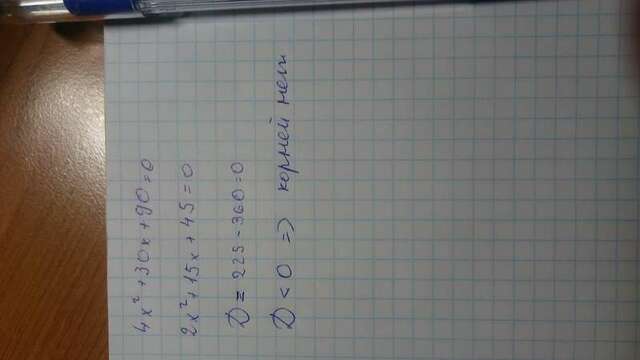 4x² + 30x + 90 = 0
2x² + 15x + 45 = 0
D = 225 - 360 = 0
D < 0 => корней нет